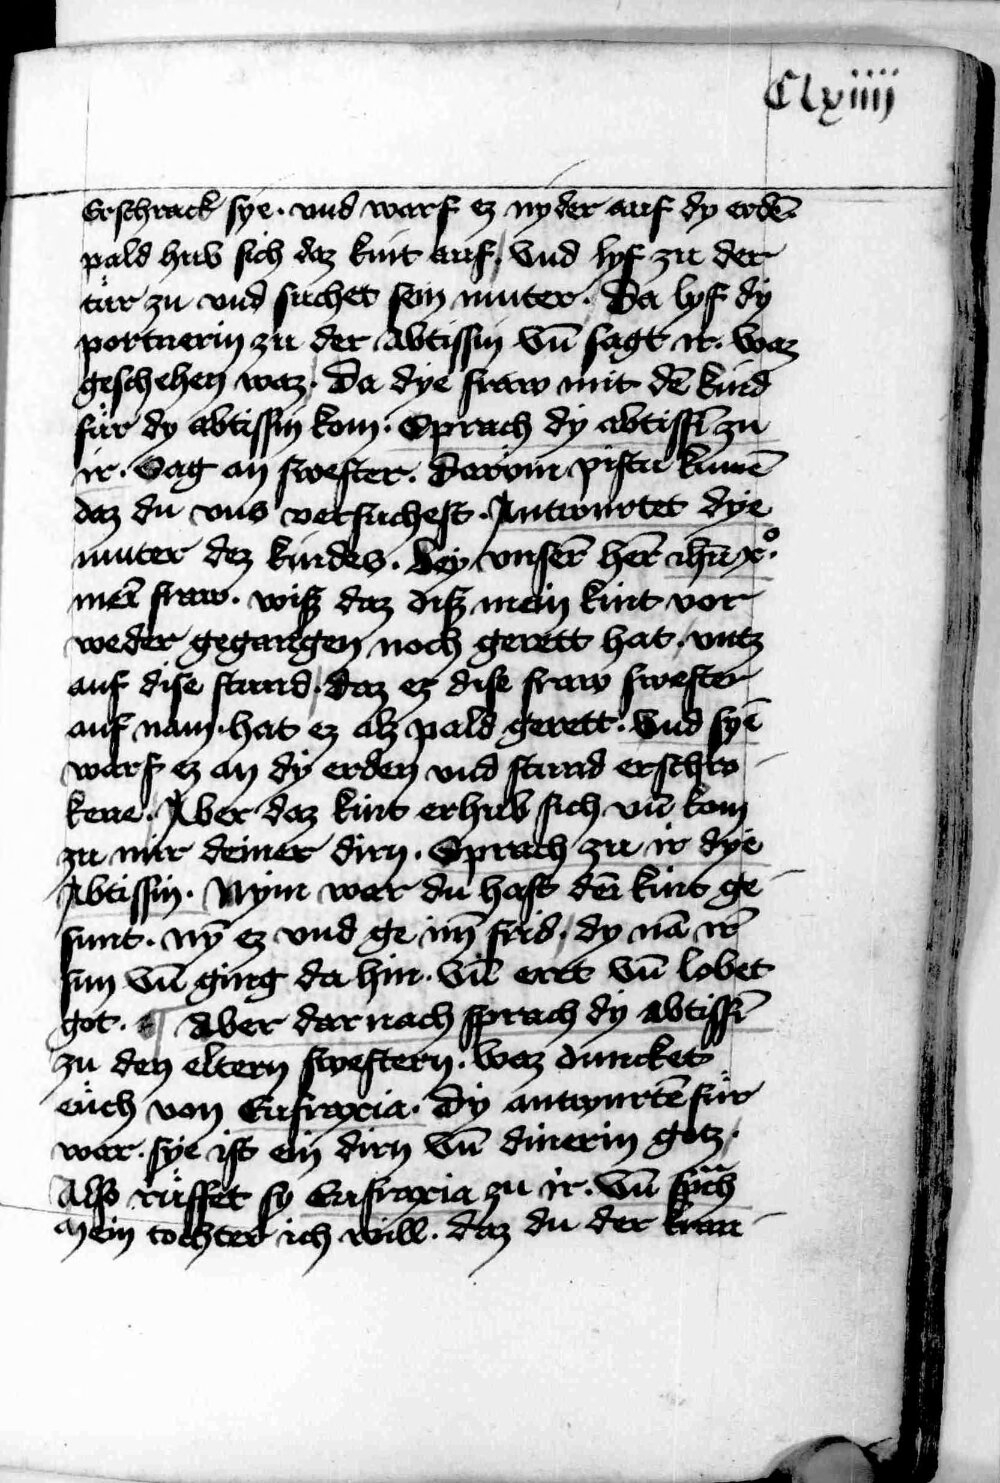 Clxiiij
Erschrack sye · vnd warf ez nyder auf dy erdē
pald hub sich daz kint auf / vnd lyf zu der
tür zu vnd suchet sein muter · Da lyf dy
portnerin zu der Abtissin vn̄ sagt ir · waz
geschehen waz · Da dye fraw mit dē kind
für dy abtissin kom · Sprach dy abtissī zu
ir · Sag an swester · Darvm pistu kumē
daz du vns versuchest · Antwurtet dye
muter dez kindes · bey vnserm̄ herr̄ ihū xº ·
mei̅ fraw · wisz daz disz mein kint vor
weder gegangen noch gerett hat · vntz
auf dise stund / daz ez dise fraw swester
auf nam · hat ez alz pald gerett · vnd syē
warf ez an dy erden vnd stund erschro-
kene · Aber daz kint erhub sich vn̄ kom
zu mir deiner dirn · Sprach zu ir dye
Abtissin · Nym war du hast dei̅ kint ge-
sunt · nȳ ez vnd ge im̄ frid / dy nā ir̄
sun vn̄ ging da hin · vn̄ eret vn̄ lobet
got · ¶ Aber dar nach sprach dy abtissī
zu den eltern swestern · waz duncket
eüch von Eufraxia · Dy antwurtē für
war · sye ist ein dirn vn̄ dinerin gotz ·
Also rüffet sy Eufraxia zu ir · vn̄ sp̄ch
Mein tochter ich will · daz du der kran-